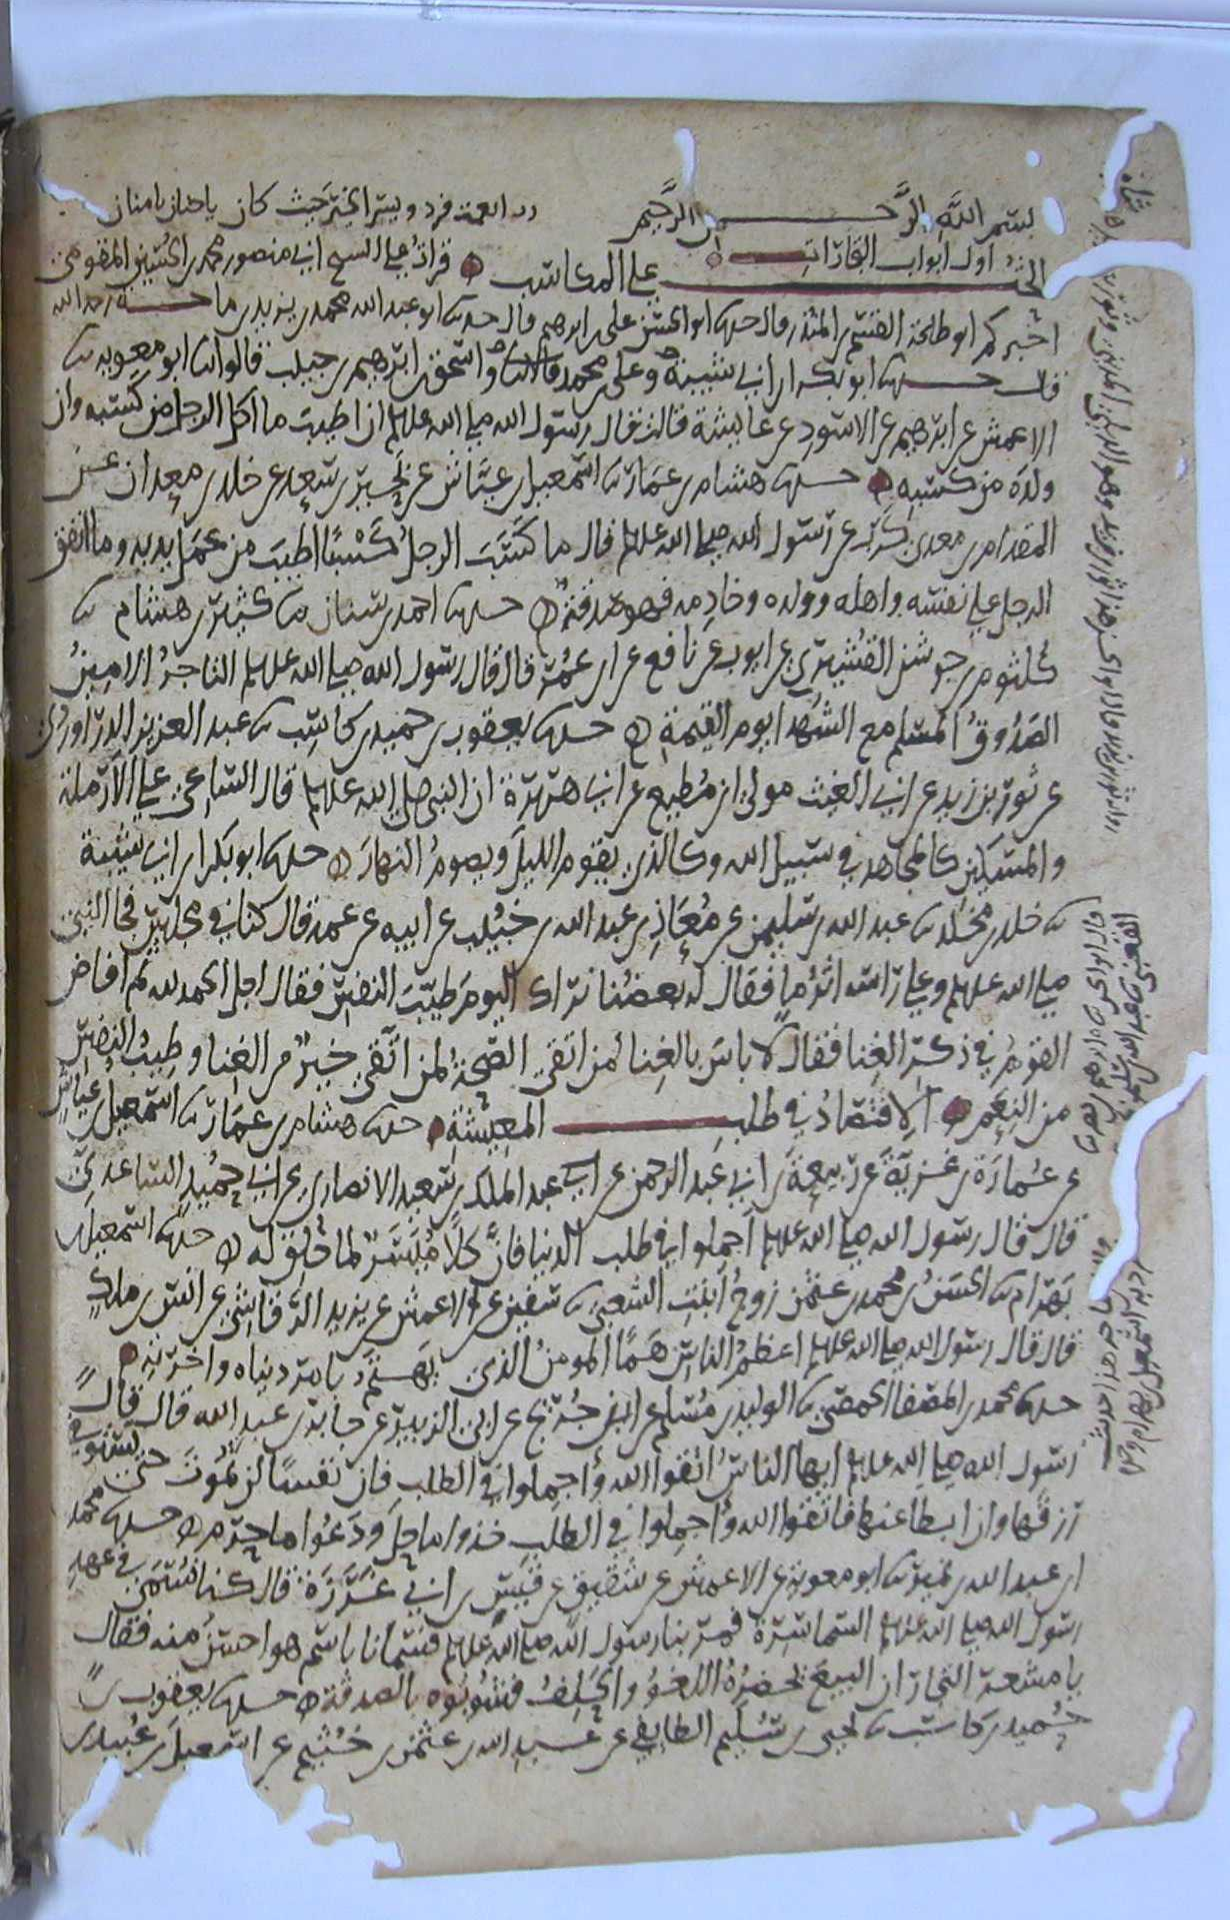 بسم الله الرحمن الرحيم رب انعمت فزد ويسر الخير حيث كان يا حنان يا منان
اول ابواب التجارات
الحث على المكاسب قرات على الشيخ ابي منصور محمد بن الحسين المقومي
اخبركم ابو طلحة القسم بن المنذر قال حدثنا ابو الحسن علي بن ابرهيم قال حدثنا ابو عبد الله محمد بن يزيد بن ماجه رحمه الله
قال حدثنا ابو بكر بن ابي شيبة وعلي بن محمد واسحق بن ابرهيم بن حبيب قالوا ثنا ابو معوية ثنا
الاعمش عن ابرهيم عن الاسود عن عايشة قالت قال رسول الله صلى الله عليه وسلم ان اطيب ما اكل الرجل من كسبه وان
ولده من كسبه حدثنا هشام بن عمار ثنا اسمعيل بن عياش عن بحير بن سعد عن خلد بن معدان عن
المقدام بن معدي كرب عن رسول الله صلى الله عليه وسلم قال ما كسب الرجل كسبا اطيب من عمل يديه وما انفق
الرجل على نفسه واهله وولده وخادمه فهو صدقة حدثنا احمد بن سنان ثنا كثير بن هشام ثنا
كلثوم بن جوشن القشيري عن ايوب عن نافع عن ابن عمر قال قال رسول الله صلى الله عليه وسلم التاجر الامين
الصدوق المسلم مع الشهدا يوم القيمة حدثنا يعقوب بن حميد بن كاسب ثنا عبد العزيز الدراوردي
عن ثور بن زيد عن ابي الغيث مولى ابن مطيع عن ابي هريرة ان النبي صلى الله عليه وسلم قال الساعي على الارملة
والمسكين كالمجاهد في سبيل الله وكالذي يقوم الليل ويصوم النهار حدثنا ابو بكر بن ابي شيبة
ثنا خلد بن مخلد ثنا عبد الله بن سليمن عن معاذ بن عبد الله بن خبيب عن ابيه عن عمه قال كنا في مجلس فجا النبي
صلى الله عليه وسلم وعلى راسه اثر ما فقال له بعضنا نراك اليوم طيب النفس فقال اجل الحمد لله ثم افاض
القوم في ذكر الغنا فقال لا باس بالغنا لمن اتقى الصحة لمن اتقى خير من الغنا وطيب النفس
من النعم الاقتصاد في طلب المعيشة حدثنا هشام بن عمار ثنا اسمعيل بن عياش
عن عمارة بن غزية عن ربيعة بن ابي عبد الرحمن عن عبد الملك بن سعيد الانصاري عن ابي حميد الساعدي
قال قال رسول الله صلى الله عليه وسلم اجملوا في طلب الدنيا فان كلا ميسر لما خلق له حدثنا اسمعيل بن
بهرام ثنا الحسن بن محمد بن عثمن زوج بنت الشعبي ثنا سفين عن الاعمش عن يزيد الرقاشي عن انس بن ملك
قال قال رسول الله صلى الله عليه وسلم اعظم الناس هما المومن الذي يهتم بامر دنياه واخرته
حدثنا محمد بن المصفا الحمصي ثنا الوليد بن مسلم عن ابن جريج عن ابي الزبير عن جابر بن عبد الله قال قال
رسول الله صلى الله عليه وسلم ايها الناس اتقوا الله واجملوا في الطلب فان نفسا لن تموت حتى تستوفي
رزقها وان ابطا عنها فاتقوا الله واجملوا في الطلب خذوا ما حل ودعوا ما حرم حدثنا محمد
ابن عبد الله بن نمير ثنا ابو معوية عن الاعمش عن شقيق عن قيس بن ابي غرزة قال كنا نسمى في عهد
رسول الله صلى الله عليه وسلم السماسرة فمر بنا رسول الله صلى الله عليه وسلم فسمانا باسم هو احسن منه فقال
يا معشر التجار ان البيع يحضره اللغو والحلف فشوبوه بالصدقة حدثنا يعقوب بن
حميد بن كاسب ثنا يحيى بن سليم الطايفي عن عبد الله بن عثمن بن خثيم عن اسمعيل بن عبيد بن